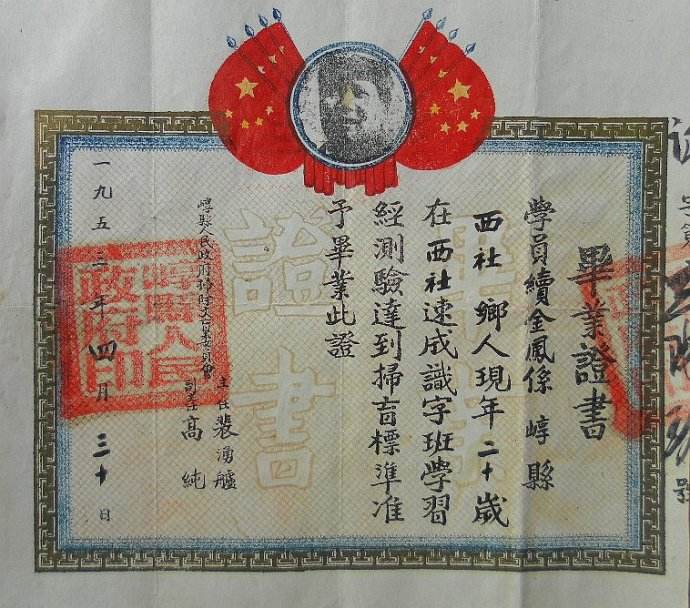 畢業證書
學員續金鳳係 崞縣
西社鄉人現年二十歲
在西社速成識字班學習
經測驗達到掃盲標準准
予畢業此證
崞縣人民政府掃除文盲委員會
主任 裴湧艫
副主任 高純
一九五三年四月三十日
崞縣人民政府印
證書
畢業
號